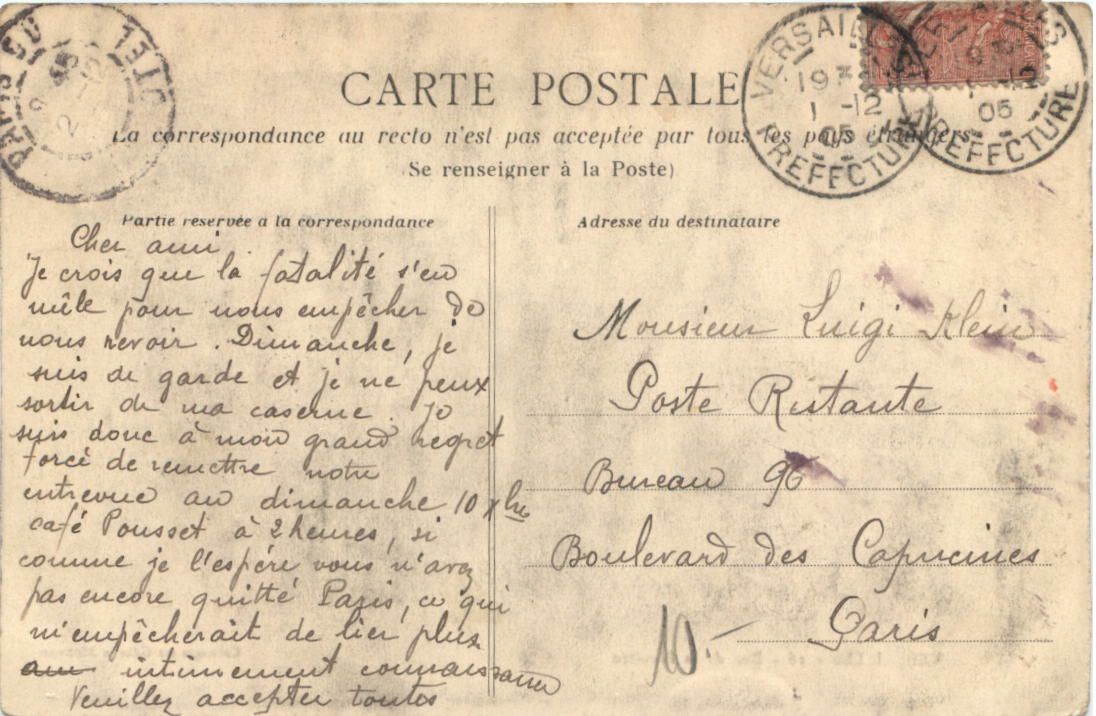 CARTE POSTALE
La correspondance au recto n'est pas acceptée par tous les pays étrangers
(Se renseigner à la Poste)
VERSAILLES
19
1 -12
05
PREFECTURE
VERSAILLES
1 12
05
PREFECTURE
PARIS
Partie réservée à la correspondance
Cher ami.
Je crois que la fatalité s'en
mêle pour nous empêcher de
nous revoir. Dimanche, je
suis de garde et je ne peux
sortir de ma caserne. Je
suis donc à mon grand regret
forcé de remettre notre
entrevue au dimanche 10 Xbre
café Pousset à 2 heures, si
comme je l'espère vous n'avez
pas encore quitté Paris, ce qui
m'empêcherait de lier plus
intimement connaissance
Veuillez accepter toutes
Adresse du destinataire
Monsieur Luigi Klein
Poste Restante
Bureau 96
Boulevard des Capucines
Paris
10.-